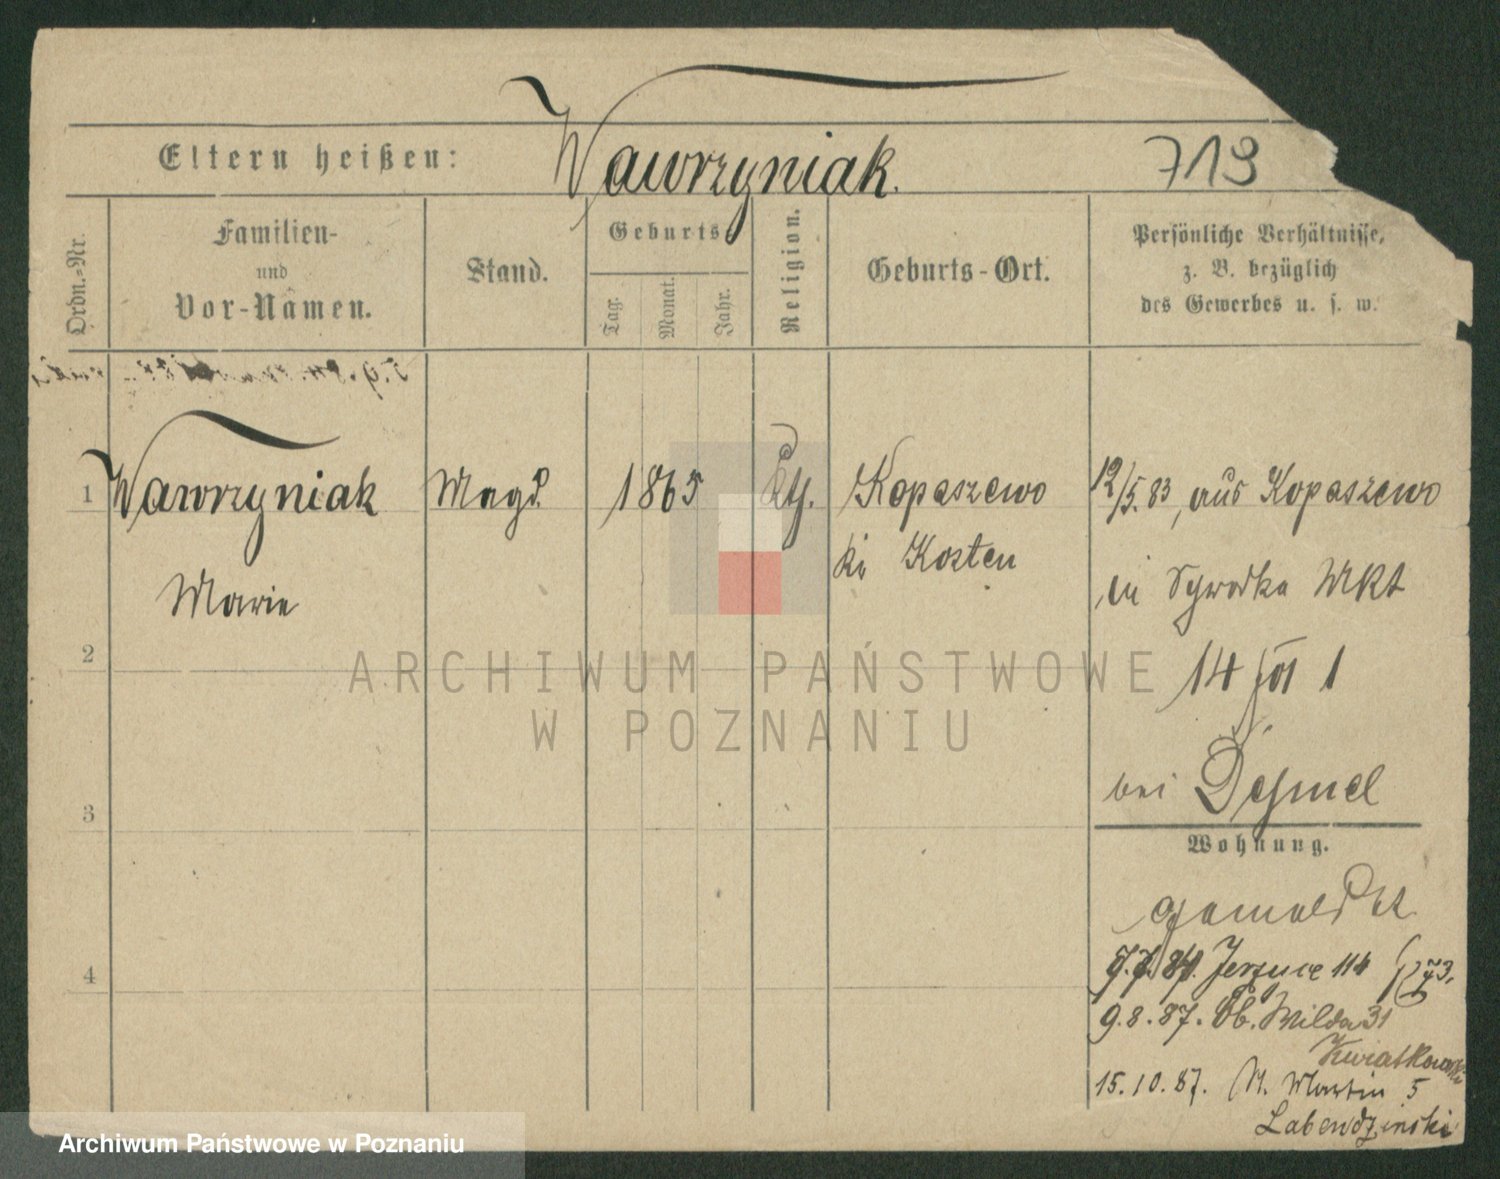 Eltern heißen: Wawrzyniak. 719
Ordn.-Nr.
Familien-
und
Vor-Namen.
Stand.
Geburts
Tag.
Monat.
Jahr.
Religion.
Geburts-Ort.
Persönliche Verhältnisse,
z. B. bezüglich
des Gewerbes u. s. w.
1 Wawrzyniak Magd. 1865 Kopaszewo 12/5. 83, aus Kopaszewo
Marie
Kosten
in MKt
14 1
bei Dehmel
2
3
4
Wohnung.
gemeldet
Jerzyce 114
9.8.87. Ob. Wilda 31
Kwiatkowski
15.10.87. St. Martin 5
Labendzinski
ARCHIWUM PAŃSTWOWE
W POZNANIU
Archiwum Państwowe w Poznaniu